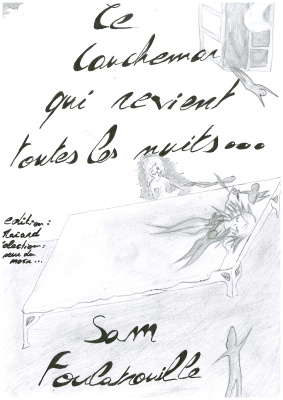 Le
Cauchemar
qui revient
toutes les nuits...
edition:
collection:
peur du
noir...
Sam
Foulatrouille